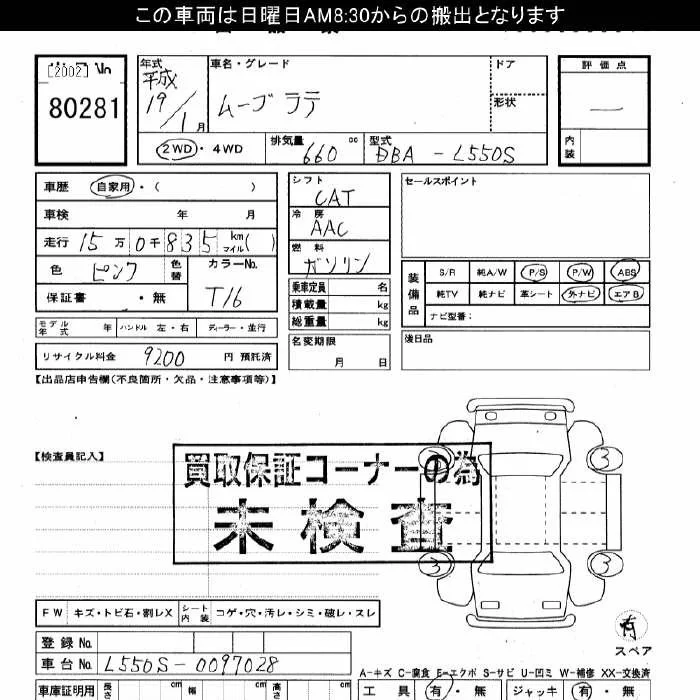 この車両は日曜日AM8:30からの搬出となります
[2002]
80281
年式
平成
19/1月
車名・グレード
ムーブ ラテ
ドア
形状
評価点
—
内装
2WD・4WD
排気量
660 cc
型式
DBA-L550S
車歴 自家用・( )
車検 年 月
走行 15万0千835 km マイル( )
色 ピンク 色替
カラーNo.
T16
保証書 ・無
モデル年式 年 ハンドル 左・右 ディーラー・並行
リサイクル料金 9200 円 預託済
シフト
CAT
冷房
AAC
燃料
ガソリン
乗車定員 名
積載量 kg
総重量 kg
名変期限
月 日
セールスポイント
装備品
S/R 純A/W P/S P/W ABS
純TV 純ナビ 革シート 外ナビ エアB
ナビ型番:
後日品
【出品店申告欄(不良箇所・欠品・注意事項等)】
【検査員記入】
買取保証コーナーの為
未検査
3 3
3 3
有
スペア
FW キズ・トビ石・割レX シート内装 コゲ・穴・汚レ・シミ・破レ・スレ
登録No.
車台No. L550S-0097028
A-キズ C-腐食 E-エクボ S-サビ U-凹ミ W-補修 XX-交換済
車庫証明用 長さ cm 幅 cm 高さ cm
工具 有・無 ジャッキ 有・無